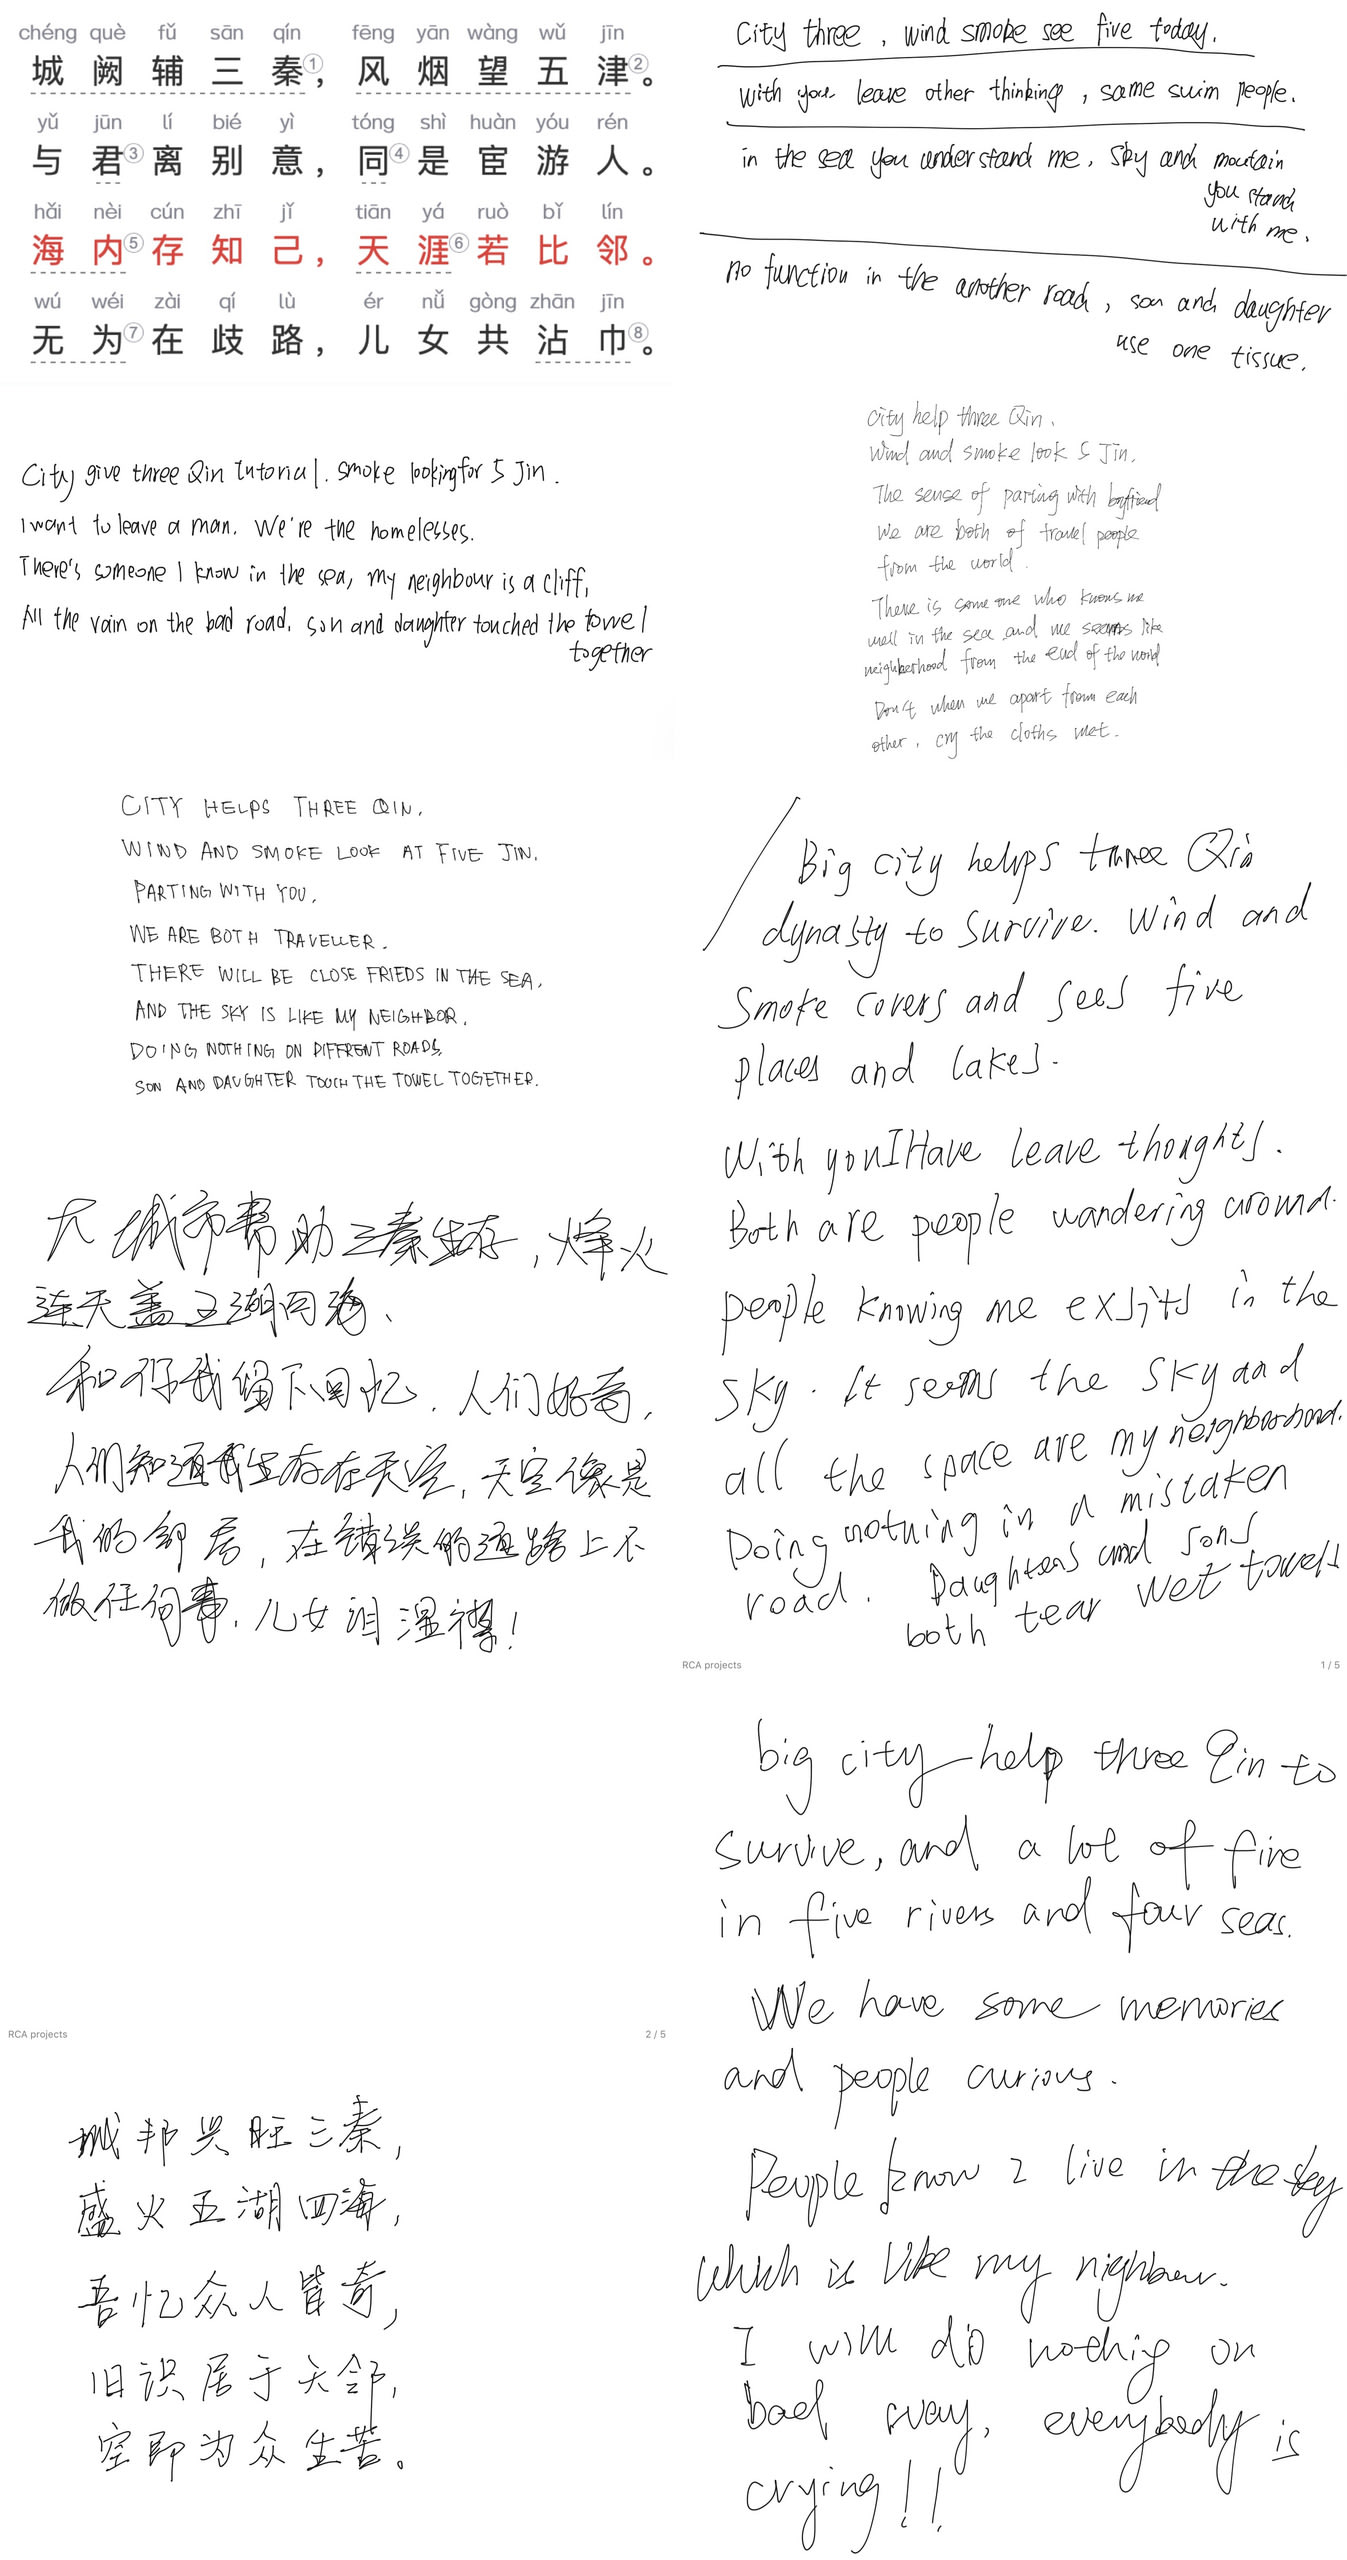 chéng què fǔ sān qín fēng yān wàng wǔ jīn
城阙辅三秦①，风烟望五津②。
yǔ jūn lí bié yì tóng shì huàn yóu rén
与君③离别意，同④是宦游人。
hǎi nèi cún zhī jǐ tiān yá ruò bǐ lín
海内⑤存知己，天涯⑥若比邻。
wú wéi zài qí lù ér nǚ gòng zhān jīn
无为⑦在歧路，儿女共沾巾⑧。
City three , wind smoke see five today.
with you leave other thinking , same swim people.
in the sea you understand me. Sky and moutain
you stand
with me.
no function in the another road , son and daughter
use one tissue.
City give three Qin tutorial. smoke looking for 5 Jin.
I want to leave a man. We're the homelesses.
There's someone I know in the sea, my neighbour is a cliff,
All the vain on the bad road. son and daughter touched the towel
together
City help three Qin.
Wind and smoke look 5 Jin.
The sense of parting with boyfriend
We are both of travel people
from the world.
There is some one who knows me
well in the sea and we seems like
neighberhood from the end of the world
Don't when we apart from each
other, cry the cloths wet.
CITY HELPS THREE QIN.
WIND AND SMOKE LOOK AT FIVE JIN.
PARTING WITH YOU.
WE ARE BOTH TRAVELLER.
THERE WILL BE CLOSE FRIEDS IN THE SEA,
AND THE SKY IS LIKE MY NEIGHBOR.
DOING NOTHING ON DIFFRENT ROADS,
SON AND DAUGHTER TOUCH THE TOWEL TOGETHER.
Big city helps three Qin
dynasty to survive. Wind and
smoke covers and sees five
places and lakes.
With you I Have leave thoughts.
Both are people wandering around.
people knowing me exsits in the
sky. It seems the sky and
all the space are my neighborhood.
Doing nothing in a mistaken
road. Daughters and sons
both tear wet towels
大城市帮助三秦生存，烽火
连天盖五湖四海、
和你我留下回忆．人们好奇，
人们知道我生存在天空，天空像是
我的邻居，在错误的道路上不
做任何事．儿女泪湿襟！
RCA projects 1 / 5
big city help three Qin to
survive, and a lot of fire
in five rivers and four seas.
We have some memories
and people curious.
People know I live in the sky
which is like my nighbour.
I will do nothig on
bad way, everybody is
crying!!
RCA projects 2 / 5
城邦兴旺三秦，
盛火五湖四海，
吾忆众人皆奇，
旧识居于天邻，
空即为众生苦。